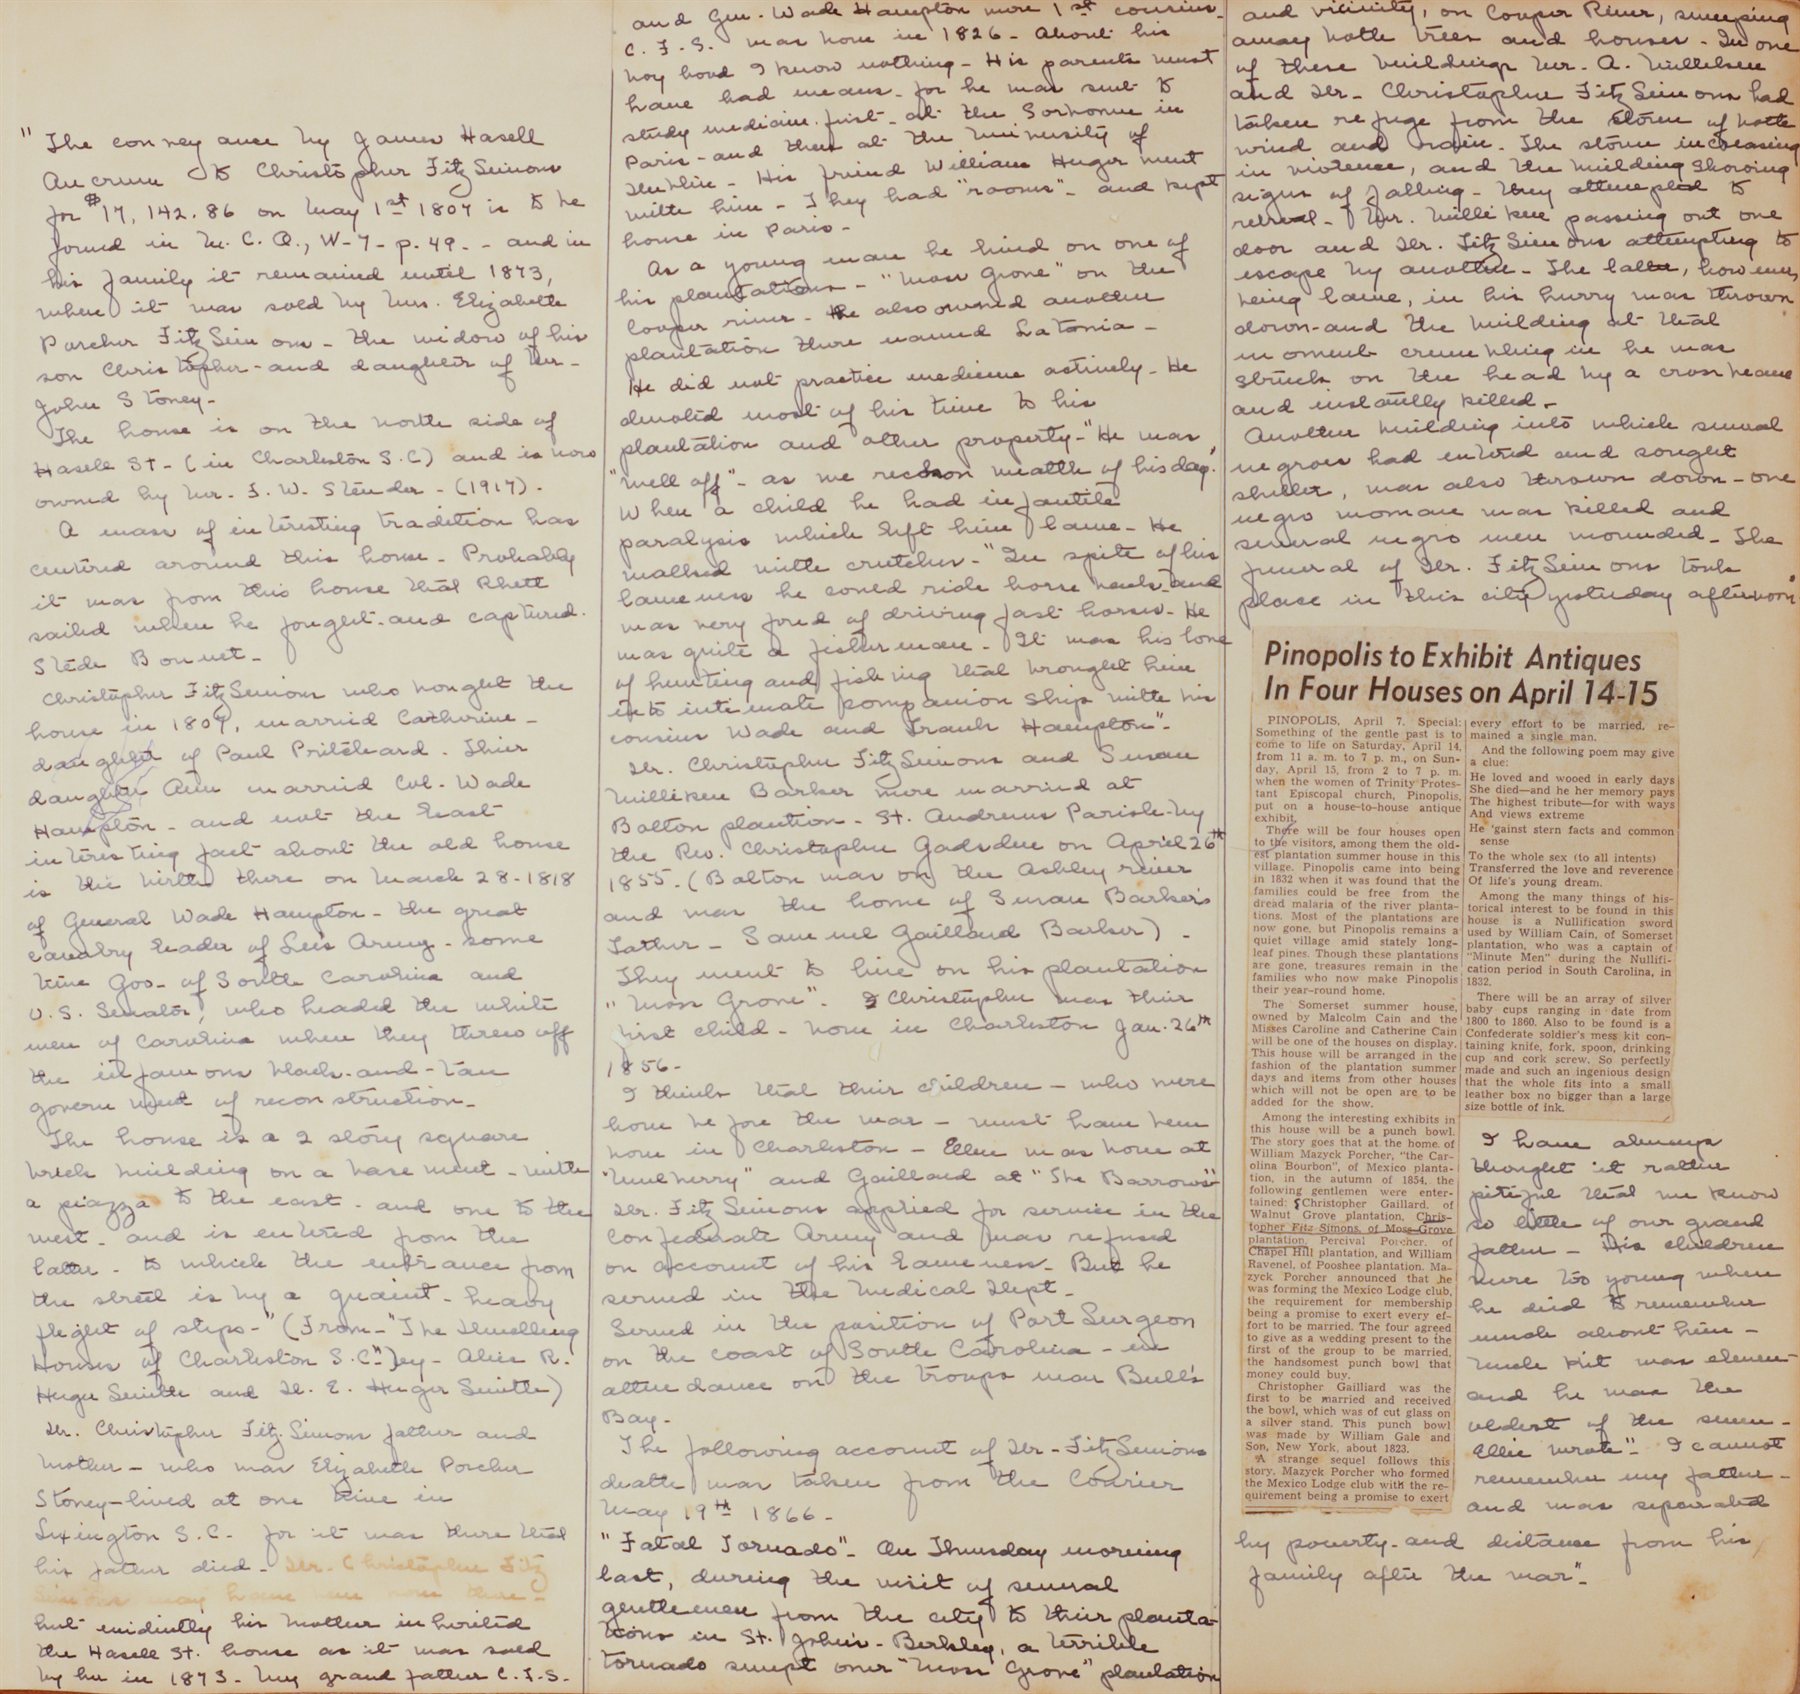 "The conveyance by James Hasell
Ancrum to Christopher FitzSimons
for $17,142.86 on May 1st 1807 is to be
found in M.C.O., W-7-p.49. - and in
his family it remained until 1873,
when it was sold by Mrs. Elizabeth
Porcher FitzSimons - the widow of his
son Christopher - and daughter of Mr.
John Stoney -
The house is on the north side of
Hasell St - (in Charleston S.C) and is now
owned by Mr. J. W. Stender - (1917).
A mass of interesting tradition has
centered around this house - Probably
it was from this house that Rhett
sailed when he fought - and captured
Stede Bonnet -
Christopher FitzSimons who bought the
house in 1807, married Catherine -
daughter of Paul Pritchard. Thier
daughter Ann married Col. Wade
Hampton - and not the least
interesting fact about the old house
is the birth there on March 28-1818
of General Wade Hampton - the great
cavalry leader of Lee's Army - some
time Gov. of South Carolina and
U.S. Senator, who headed the white
men of Carolina when they threw off
the infamous black-and-tan
government of reconstruction -
The house is a 2 story square
brick building on a basement - with
a piazza to the east - and one to the
west - and is entered from the
latter - to which the entrance from
the street is by a quaint - heavy
flight of steps -" (From - "The Dwelling
Houses of Charleston S.C") by - Alice R.
Huger Smith and D. E. Huger Smith)
Dr. Christopher FitzSimons father and
mother - who was Elizabeth Porcher
Stoney - lived at one time in
Lexington S.C. for it was there that
his father died - Dr. Christopher Fitz
Simons may have been born there -
but evidently his mother inherited
the Hasell St. house as it was sold
by her in 1873 - My grand father C.F.S.
and Gen. Wade Hampton were 1st cousins -
C.F.S. was born in 1826 - About his
boy hood I know nothing - His parents must
have had means - for he was sent to
study medicine first - at the Sorbonne in
Paris - and then at the University of
Dublin - His friend William Huger went
with him - They had "rooms" - and kept
house in Paris -
As a young man he lived on one of
his plantations - "Moss Grove" on the
Cooper river - He also owned another
plantation there named Latonia -
He did not practice medicine actively - He
devoted most of his time to his
plantation and other property - "He was
"well off" - as we reckon wealth of his day."
When a child he had infantile
paralysis which left him lame - He
walked with crutches - "In spite of his
lameness he could ride horse back - and
was very fond of driving fast horses - He
was quite a fisherman - It was his love
of hunting and fishing that brought him
into intimate companion ship with his
cousins Wade and Frank Hampton" -
Dr. Christopher FitzSimons and Susan
Milliken Barker were married at
Bolton plantion - St. Andrews Parish - by
the Rev. Christopher Gadsden on April 26th
1855 - (Bolton was on the Ashley river
and was the home of Susan Barker's
Father - Samuel Gaillard Barker) -
They went to live on his plantation
"Moss Grove". Christopher was their
first child - born in Charleston Jan. 26th
1856 -
I think that their children - who were
born before the war - must have been
born in Charleston - Ellen was born at
"Mulberry" and Gaillard at "The Barrows" -
Dr. FitzSimons applied for service in the
Confederate Army and was refused
on account of his lameness - But he
served in the Medical Dept -
Served in the position of Port Surgeon
on the coast of South Carolina - in
attendance on the troops near Bull's
Bay -
The following account of Dr - FitzSimons
death was taken from the Courier
May 19th 1866 -
"Fatal Tornado" - On Thursday morning
last, during the visit of several
gentlemen from the city to their planta-
tions in St. John's - Berkley, a terrible
tornado swept over "Moss Grove" plantation
and vicinity, on Cooper River, sweeping
away both trees and houses - In one
of these buildings Mr. A. Milliken
and Dr - Christopher FitzSimons had
taken refuge from the storm of both
wind and rain. The storm increasing
in violence, and the building showing
signs of falling - they attempted to
retreat - Mr. Milliken passing out one
door and Dr. FitzSimons attempting to
escape by another - The latter, however,
being lame, in his hurry was thrown
down - and the building at that
moment crumbling in he was
struck on the head by a cross beam
and instantly killed -
Another building into which several
negroes had entered and sought
shelter, was also thrown down - one
negro woman was killed and
several negro men wounded - The
funeral of Dr. FitzSimons took
place in this city yesterday afternoon"
Pinopolis to Exhibit Antiques
In Four Houses on April 14-15
PINOPOLIS, April 7. Special:
Something of the gentle past is to
come to life on Saturday, April 14,
from 11 a. m. to 7 p. m., on Sun-
day, April 15, from 2 to 7 p. m.
when the women of Trinity Protes-
tant Episcopal church, Pinopolis,
put on a house-to-house antique
exhibit.
There will be four houses open
to the visitors, among them the old-
est plantation summer house in this
village. Pinopolis came into being
in 1832 when it was found that the
families could be free from the
dread malaria of the river planta-
tions. Most of the plantations are
now gone, but Pinopolis remains a
quiet village amid stately long-
leaf pines. Though these plantations
are gone, treasures remain in the
families who now make Pinopolis
their year-round home.
The Somerset summer house,
owned by Malcolm Cain and the
Misses Caroline and Catherine Cain
will be one of the houses on display.
This house will be arranged in the
fashion of the plantation summer
days and items from other houses
which will not be open are to be
added for the show.
Among the interesting exhibits in
this house will be a punch bowl.
The story goes that at the home of
William Mazyck Porcher, "the Car-
olina Bourbon", of Mexico planta-
tion, in the autumn of 1854, the
following gentlemen were enter-
tained: Christopher Gaillard, of
Walnut Grove plantation, Chris-
topher Fitz Simons, of Moss Grove
plantation, Percival Porcher, of
Chapel Hill plantation, and William
Ravenel, of Pooshee plantation. Ma-
zyck Porcher announced that he
was forming the Mexico Lodge club,
the requirement for membership
being a promise to exert every ef-
fort to be married. The four agreed
to give as a wedding present to the
first of the group to be married,
the handsomest punch bowl that
money could buy.
Christopher Gailliard was the
first to be married and received
the bowl, which was of cut glass on
a silver stand. This punch bowl
was made by William Gale and
Son, New York, about 1823.
A strange sequel follows this
story. Mazyck Porcher who formed
the Mexico Lodge club with the re-
quirement being a promise to exert
every effort to be married, re-
mained a single man.
And the following poem may give
a clue:
He loved and wooed in early days
She died—and he her memory pays
The highest tribute—for with ways
And views extreme
He 'gainst stern facts and common
sense
To the whole sex (to all intents)
Transferred the love and reverence
Of life's young dream.
Among the many things of his-
torical interest to be found in this
house is a Nullification sword
used by William Cain, of Somerset
plantation, who was a captain of
"Minute Men" during the Nullifi-
cation period in South Carolina, in
1832.
There will be an array of silver
baby cups ranging in date from
1800 to 1860. Also to be found is a
Confederate soldier's mess kit con-
taining knife, fork, spoon, drinking
cup and cork screw. So perfectly
made and such an ingenious design
that the whole fits into a small
leather box no bigger than a large
size bottle of ink.
I have always
thought it rather
pitiful that we know
so little of our grand
father - His children
were too young when
he died to remember
much about him -
Uncle Kit was eleven
and he was the
oldest of the seven -
Ellie wrote - "I cannot
remember my father -
and was separated
by poverty - and distance from his
family after the war" -